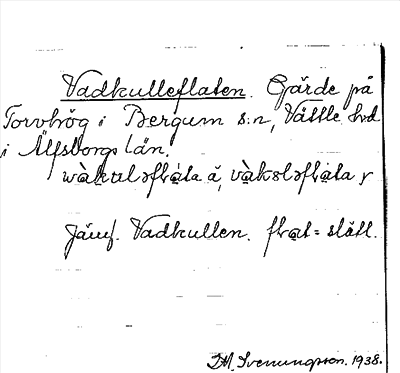 Vadkulleflaten. Gärde på
Torvhög i Bergum s:n, Vättle hd
i Älfsborgs län.
wàkɯləflàta ă, vàksləflàta y
Jämf. Vadkullen. flat = slätt.
D.M. Svenungsson. 1938.